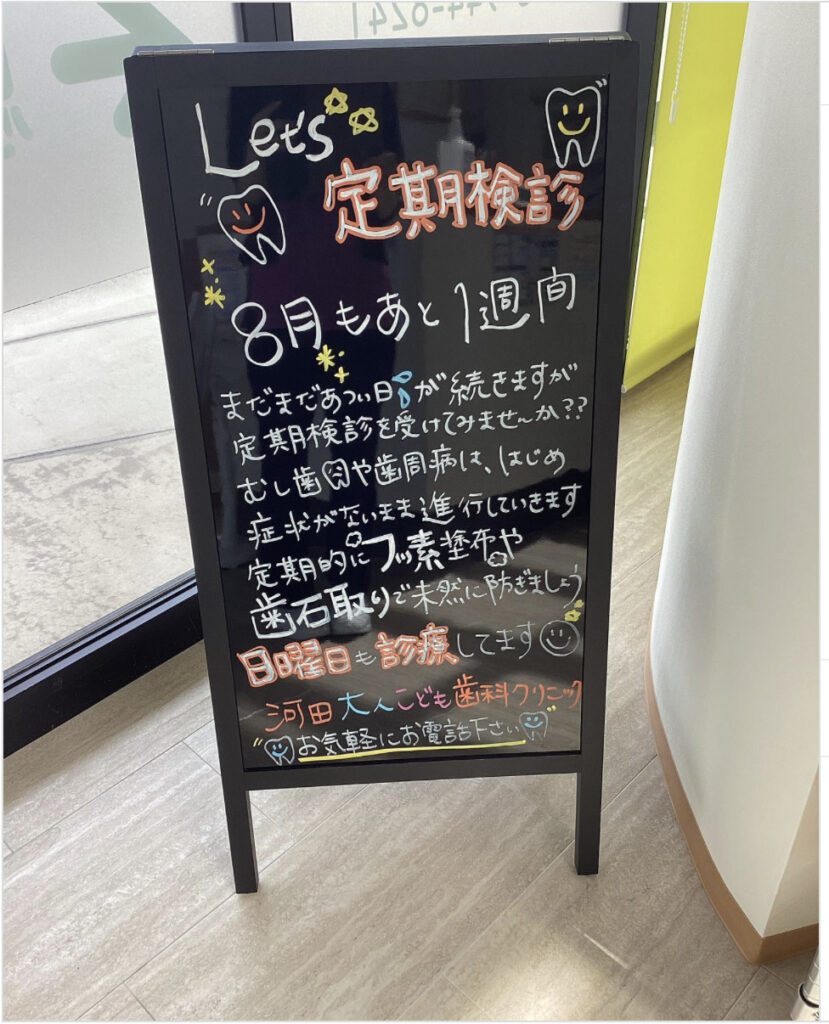 744-0241
Let's
定期検診
8月もあと1週間
まだまだあつい日が続きますが
定期検診を受けてみませんか??
むし歯や歯周病は、はじめ
症状がないまま進行していきます
定期的にフッ素塗布や
歯石取りで未然に防ぎましょう
日曜日も診療してます
河田大人こども歯科クリニック
お気軽にお電話下さい